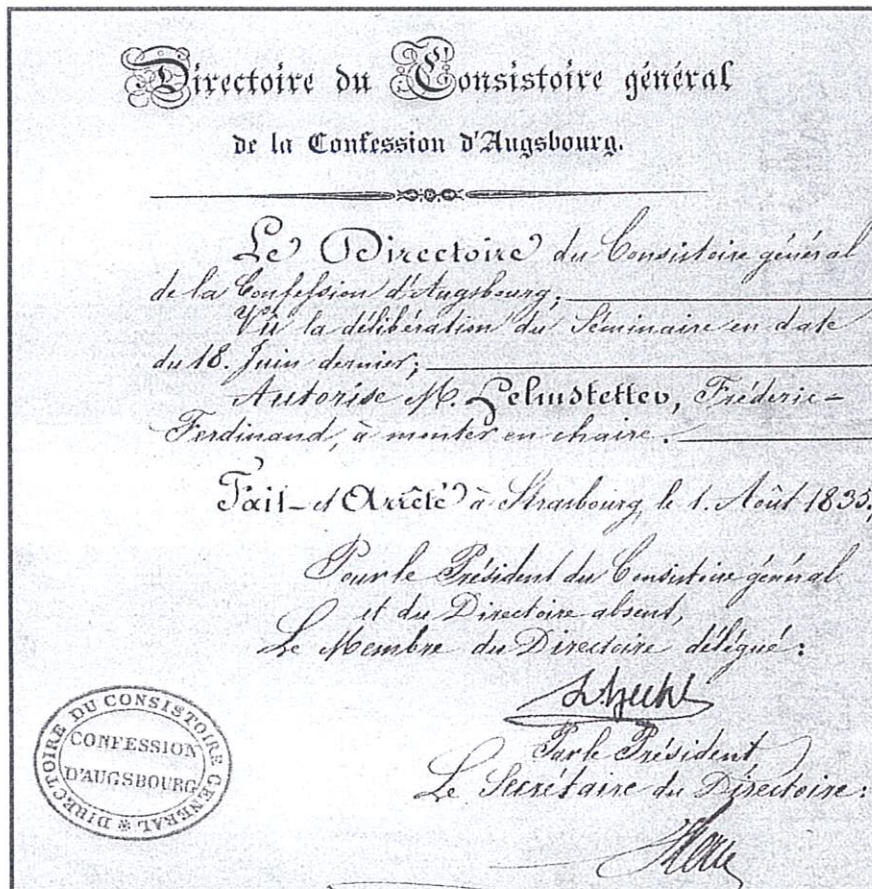 Directoire du Consistoire général
de la Confession d'Augsbourg.
Le Directoire du Consistoire général
de la Confession d'Augsbourg,
Vû la délibération du Séminaire en date
du 18. Juin dernier;
Autorise M. Lelmstetter, Fréderic-
Ferdinand, à monter en chaire.
Fait et Arrêté à Strasbourg, le 1. Août 1835.
Pour le Président du Consistoire général
et du Directoire absent,
Le Membre du Directoire délégué:
Par le Président,
Le Secrétaire du Directoire:
DIRECTOIRE DU CONSISTOIRE GENERAL
CONFESSION
D'AUGSBOURG